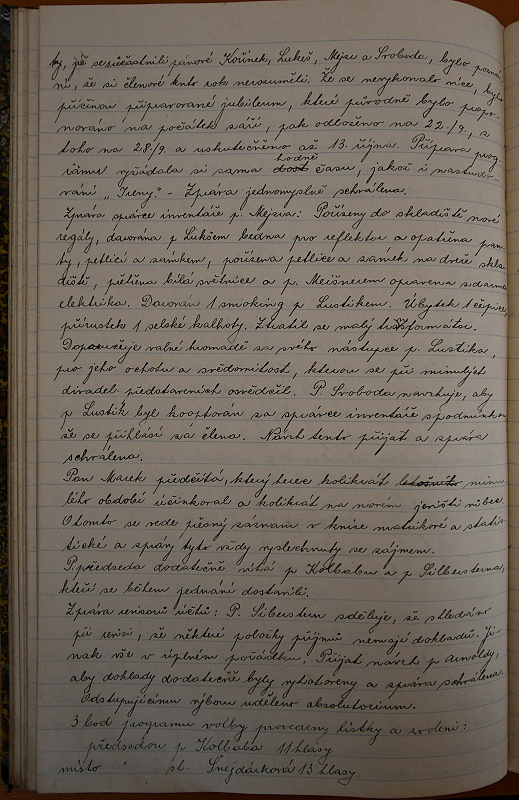 ty, jež se súčastnili pánové Kořínek, Lukeš, Mejsa a Svoboda, bylo pozná-
ní, že si členové tento rok nerozuměli. Že se nevykonalo více, bylo
příčinou připravované jubileum, které původně bylo propo-
nováno na počátek září, pak odloženo na 22./9., z
toho na 28./9. a uskutečněno až 13. října. Příprava prog-
rámu vyžádala si sama dost hodně času, jakož i nastudo-
vání „Ireny". - Zpráva jednomyslně schválena.
Zpráva správce inventáře p. Mejsa: Pořízeny do skladiště nové
regály, darována p. Lukešem bedna pro reflektor a opatřena pan-
ty, petlicí a zámkem, pořízena petlice a zámek na dveře skla-
diště, přetřena bílá světnice a p. Meišnerem opravena zdarma
elektrika. Darován 1 smoking p. Lustikem. Úbytek 1 čepice,
přírustek 1 selské kalhoty. Ztratil se malý transformátor.
Doporučuje valné hromadě za svého nástupce p. Lustika,
pro jeho ochotu a svědomitost, kterou se při minulých
divadel. představeních osvědčil. P. Svoboda navrhuje, aby
p. Lustik byl kooptován za správce inventáře s podmínkou
že se přihlásí za člena. Návrh tento přijat a zpráva
schválena.
Pan Marek předčítá, který herec kolikrát letošního minu-
lého období účinkoval a kolikrát na novém jevišti vůbec
O tomto se vede přesný záznam v knize matrikové a statis-
tické a zprávy tyto vždy vyslechnuty se zájmem.
P. předseda dodatečně vítá p. Kolbabu a p. Silbersterna,
kteří se během jednání dostavili.
Zpráva revisorů účtů: P. Silberstern sděluje, že shledáno
při revisi, že některé položky příjmů nemají dokladů. Ji-
nak vše v úplném pořádku. Přijat návrh p. Arnoldy,
aby doklady dodatečně byly vyhotoveny a zpráva schválena.
Odstupujícímu výboru uděleno absolutorium.
3 bod programu volby provedeny lístky a zvoleni:
předsedou p. Kolbaba 11 hlasy
místo " sl. Šnejdárková 13 hlasy.